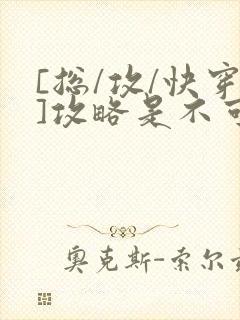 [总/攻/快穿
]攻略是不可
奥克斯-索尔